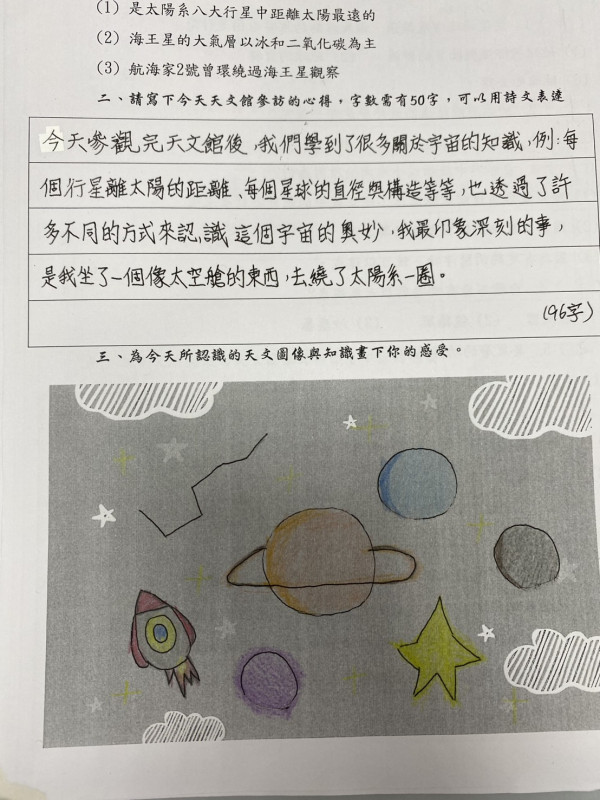 (1) 是太陽系八大行星中距離太陽最遠的
(2) 海王星的大氣層以冰和二氧化碳為主
(3) 航海家2號曾環繞過海王星觀察
二、請寫下今天天文館參訪的心得，字數需有50字，可以用詩文表達
今天參觀完天文館後，我們學到了很多關於宇宙的知識，例：每
個行星離太陽的距離、每個星球的直徑與構造等等，也透過了許
多不同的方式來認識這個宇宙的奧妙，我最印象深刻的事，
是我坐了一個像太空艙的東西，去繞了太陽系一圈。
(96字)
三、為今天所認識的天文圖像與知識畫下你的感受。